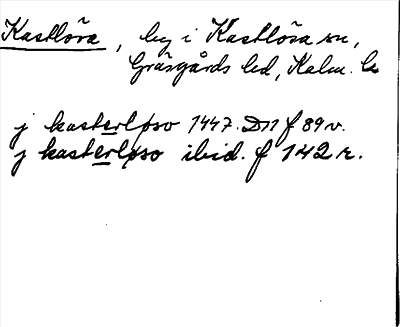 Kastlösa, by i Kastlösa sn,
Gräsgårds hd, Kalm. l.
j kasterløso 1447. D11 f 89 v.
j kasterløso ibid. f 142 r.